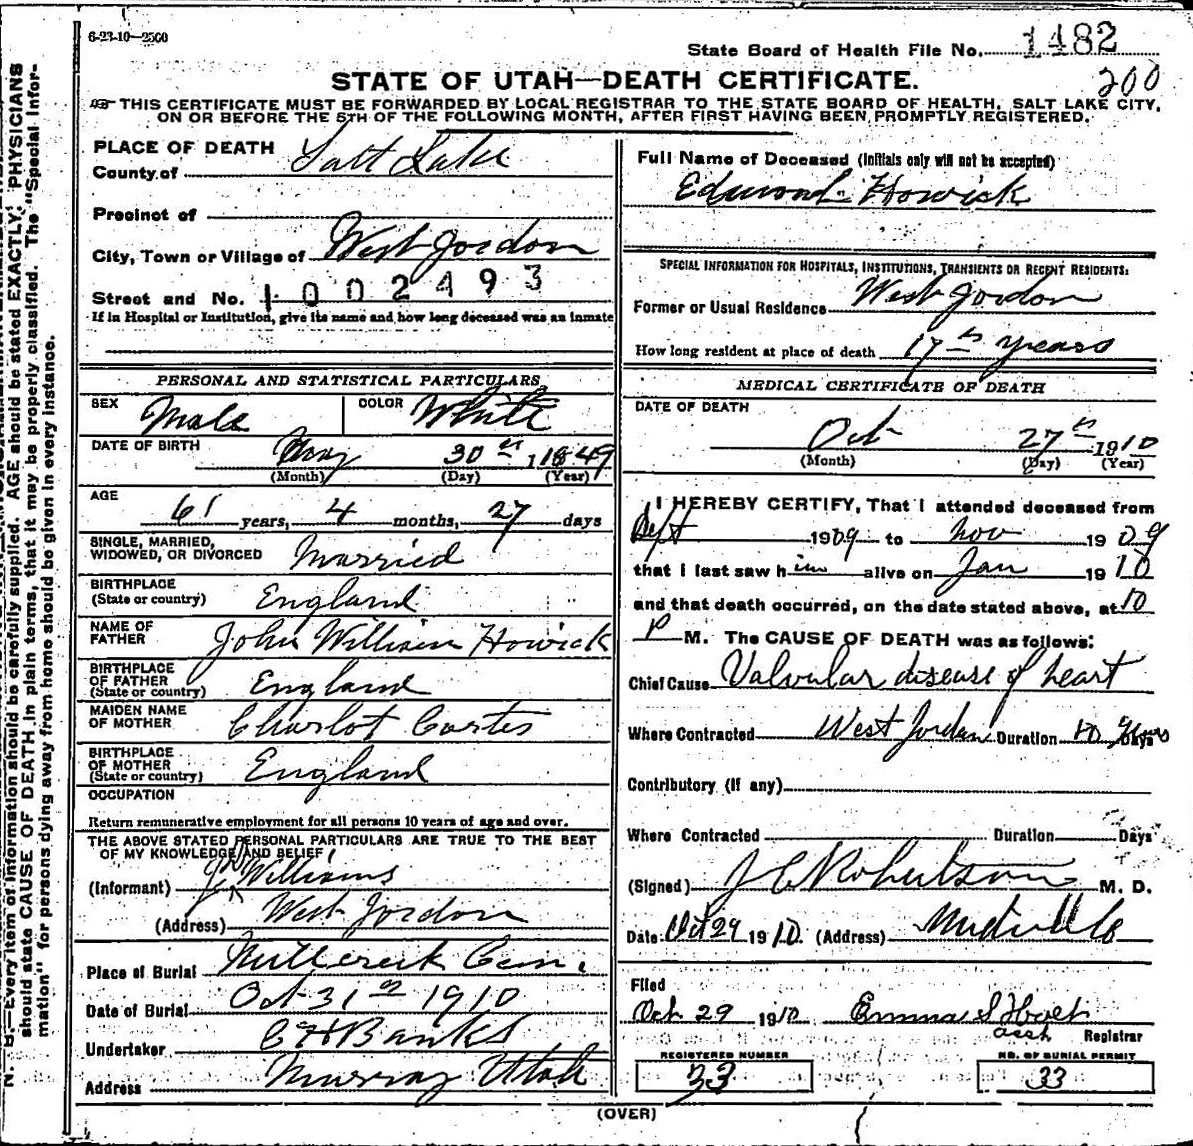 6-23-10—2500
State Board of Health File No. 1482
200
STATE OF UTAH—DEATH CERTIFICATE.
THIS CERTIFICATE MUST BE FORWARDED BY LOCAL REGISTRAR TO THE STATE BOARD OF HEALTH, SALT LAKE CITY,
ON OR BEFORE THE 5TH OF THE FOLLOWING MONTH, AFTER FIRST HAVING BEEN PROMPTLY REGISTERED.
PLACE OF DEATH
County of Salt Lake
Precinct of
City, Town or Village of West Jordon
Street and No. 1002493
If in Hospital or Institution, give its name and how long deceased was an inmate
PERSONAL AND STATISTICAL PARTICULARS
SEX Male COLOR White
DATE OF BIRTH May 30th 1849
(Month) (Day) (Year)
AGE
61 years, 4 months, 27 days
SINGLE, MARRIED,
WIDOWED, OR DIVORCED Married
BIRTHPLACE
(State or country) England
NAME OF
FATHER John William Howick
BIRTHPLACE
OF FATHER
(State or country) England
MAIDEN NAME
OF MOTHER Charlot Carter
BIRTHPLACE
OF MOTHER
(State or country) England
OCCUPATION
Return remunerative employment for all persons 10 years of age and over.
THE ABOVE STATED PERSONAL PARTICULARS ARE TRUE TO THE BEST
OF MY KNOWLEDGE AND BELIEF
(Informant) Williams
(Address) West Jordon
Place of Burial Millcreek Cem.
Date of Burial Oct 31st 1910
Undertaker C H Banks
Address Murray Utah
Full Name of Deceased (Initials only will not be accepted)
Edmond Howick
SPECIAL INFORMATION FOR HOSPITALS, INSTITUTIONS, TRANSIENTS OR RECENT RESIDENTS:
Former or Usual Residence West Jordon
How long resident at place of death 17 years
MEDICAL CERTIFICATE OF DEATH
DATE OF DEATH
Oct 27th 1910
(Month) (Day) (Year)
I HEREBY CERTIFY, That I attended deceased from
Sept 1909 to Nov 1909
that I last saw him alive on Jan 1910
and that death occurred, on the date stated above, at 10
P M. The CAUSE OF DEATH was as follows:
Chief Cause Valvular disease of heart
Where Contracted West Jordan Duration 10 Days
Contributory (if any)
Where Contracted Duration Days
(Signed) J C Robertson M. D.
Date Oct 29 1910. (Address)
Filed
Oct 29 1910 Emma S Holt
asst Registrar
REGISTERED NUMBER
33
NO. OF BURIAL PERMIT
33
(OVER)
N. B.—Every item of information should be carefully supplied. AGE should be stated EXACTLY. PHYSICIANS
should state CAUSE OF DEATH in plain terms, that it may be properly classified. The "Special Infor-
mation" for persons dying away from home should be given in every instance.